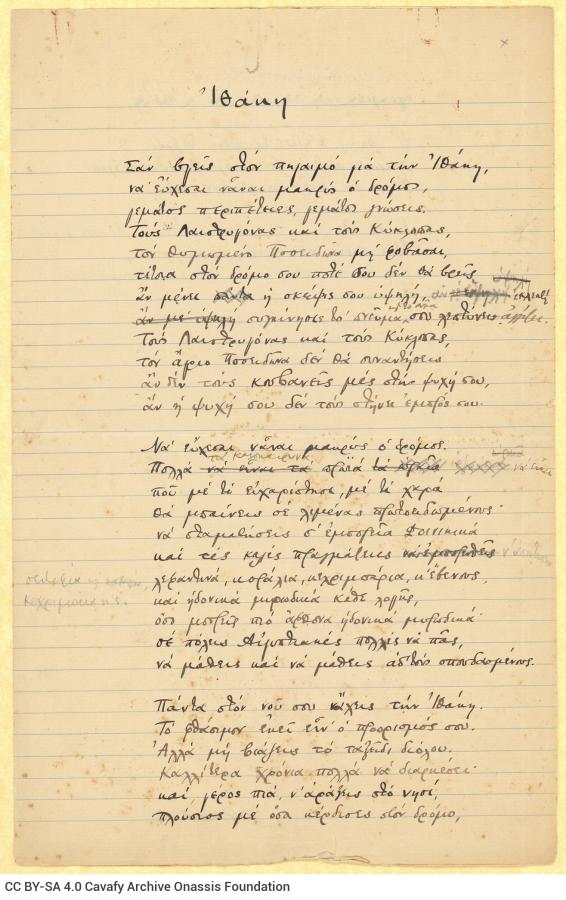 Ἰθάκη
Σὰν βγεῖς στὸν πηγαιμὸ γιὰ τὴν Ἰθάκη,
νὰ εὔχεσαι νἆναι μακρὺς ὁ δρόμος,
γεμάτος περιπέτειες, γεμάτος γνώσεις.
Τοὺς Λαιστρυγόνας καὶ τοὺς Κύκλωπας,
τὸν θυμωμένο Ποσειδῶνα μὴ φοβᾶσαι,
τέτοια στὸν δρόμο σου ποτέ σου δὲν θὰ βρεῖς
ἂν μένει πάντα ἡ σκέψις σου ὑψηλή, ἐκλεκτὴ
ἂν μὲ ὑψηλὴ συγκίνησις τὸ πνεῦμα σου ἀγγίζει.
Τοὺς Λαιστρυγόνας καὶ τοὺς Κύκλωπας,
τὸν ἄγριο Ποσειδῶνα δὲν θὰ συναντήσεις
ἂν δὲν τοὺς κουβανεῖς μὲς στὴν ψυχή σου,
ἂν ἡ ψυχή σου δὲν τοὺς στήνει ἐμπρός σου.
Νὰ εὔχεσαι νἆναι μακρὺς ὁ δρόμος.
τὰ καλοκαιρινὰ
Πολλὰ νὰ εἶναι τὰ πρωϊὰ νὰ εἶναι
ποῦ μὲ τί εὐχαρίστησι, μὲ τί χαρὰ
θὰ μπαίνεις σὲ λιμένας πρωτοειδωμένους·
νὰ σταματήσεις σ' ἐμπορεῖα Φοινικικὰ
καὶ τὲς καλὲς πραγμάτειες
σεντέφια καὶ κοράλλια,
κεχριμπάρια κ' ἔ.
κοράλια, κεχριμπάρια, κ' ἔβενους,
καὶ ἡδονικὰ μυρωδικὰ κάθε λογῆς,
ὅσο μπορεῖς πιὸ ἄφθονα ἡδονικὰ μυρωδικά·
σὲ πόλεις Αἰγυπτιακὲς πολλὲς νὰ πᾷς,
νὰ μάθεις καὶ νὰ μάθεις ἀπ' τοὺς σπουδασμένους.
Πάντα στὸν νοῦ σου νἄχεις τὴν Ἰθάκη.
Τὸ φθάσιμον ἐκεῖ εἶν' ὁ προορισμός σου.
Ἀλλὰ μὴ βιάζεις τὸ ταξεῖδι διόλου.
Καλλίτερα χρόνια πολλὰ νὰ διαρκέσει·
καὶ γέρος πιὰ ν' ἀράξεις στὸ νησί,
πλούσιος μὲ ὅσα κέρδισες στὸν δρόμο,
CC BY-SA 4.0 Cavafy Archive Onassis Foundation